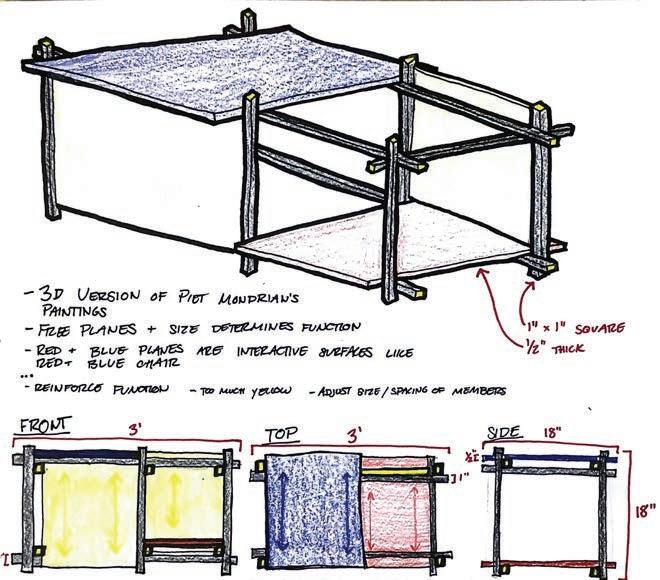 - 3D VERSION OF PIET MONDRIAN'S
PAINTINGS
- FREE PLANES + SIZE DETERMINES FUNCTION
- RED + BLUE PLANES ARE INTERACTIVE SURFACES LIKE
RED + BLUE CHAIR
...
- REINFORCE FUNCTION - TOO MUCH YELLOW - ADJUST SIZE/SPACING OF MEMBERS
1" x 1" SQUARE
1/2" THICK
FRONT
3'
TOP
3'
1"
SIDE
18"
18"